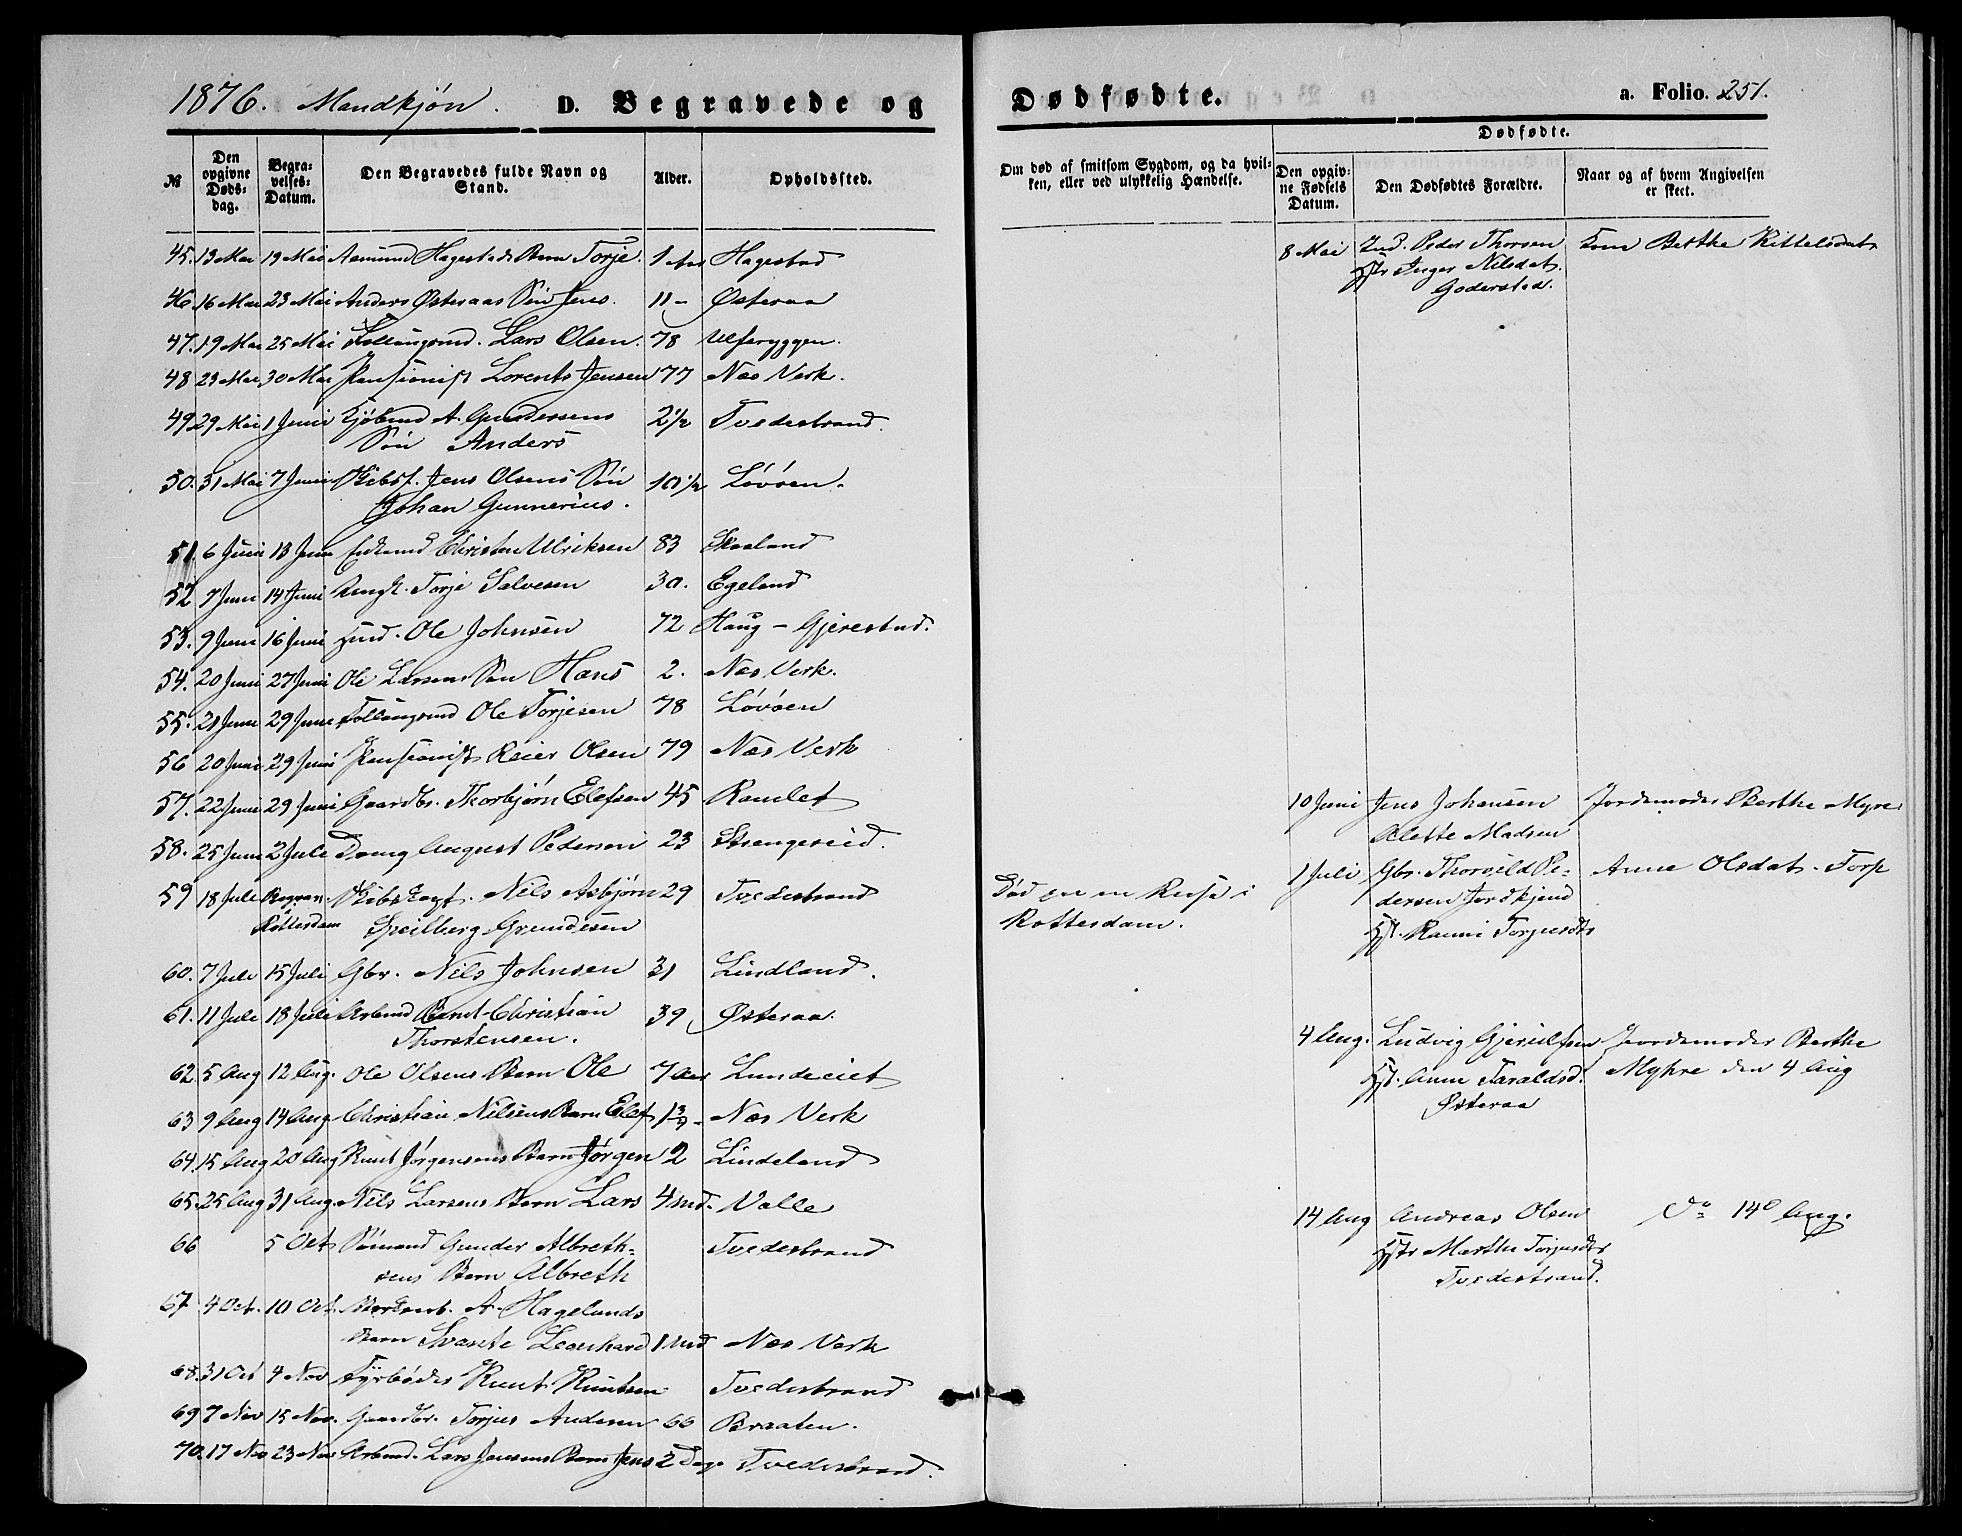 1876. Mandkjøn. D. Begravede og
№ Den opgivne Døds-dag. Begra-velses-Datum. Den Begravedes fulde Navn og Stand. Alder. Opholdssted.
45. 13 Mai 19 Mai Asmund Hagestads Barn Torje. 1 Aar Hagestad
46. 16 Mai 23 Mai Anders Østeraas Søn Jens. 11 - Østeraa
47. 19 Mai 25 Mai Follaugsmd. Lars Olsen. 78 Ulfsryggen.
48 23 Mai 30 Mai Pensionist Lorents Jensen 77 Næs Verk.
49. 29 Mai 1 Juni Kjøbmd A. Gundersens 2½ Tvedestrand.
Søn Anders
50. 31 Mai 7 Juni Skibst. Jens Olsens Søn 10½ Løvøen.
Johan Gunnerius.
51. 6 Juni 13 Juni Christen Ulriksen 83 Skaaland
52 7 Juni 14 Juni Ungk. Torje Salvesen 30. Egeland
53. 9 Juni 16 Juni Ind. Ole Johnsen 72 Haug - Gjerestad.
54. 20 Juni 27 Juni Ole Larsens Søn Hans 2. Næs Verk.
55. 21 Juni 29 Juni Follaugsmd Ole Torjesen 78 Løvøen
56 20 Juni 29 Juni Pensionist Reier Olsen 79 Næs Verk
57. 22 Juni 29 Juni Gaardbr. Thorbjørn Elefsen 45 Ramlet
58. 25 Juni 2 Juli Dreng August Pedersen 23 Strengereid.
59 18 Juli Begrav. Skibskapt. Nils Asbjørn 29 Tvedestrand
i Rotterdam Speilberg Grundesen
60. 7 Juli 15 Juli Gbr. Nils Johnsen 31 Lindland.
61. 11 Juli 18 Juli Arbmd Bent Christian 39 Østeraa.
Thorstensen.
62. 5 Aug 12 Aug. Ole Olsens Barn Ole 7 Aar Lundeiet
63 9 Aug 14 Aug. Christian Nilsens Barn Elef 1¾ - Næs Verk
64. 15 Aug 20 Aug Knut Jørgensens Barn Jørgen 2 Lindeland
65. 25 Aug 31 Aug. Nils Larsens Barn Lars 4 Md. Valle
66 5 Oct Sømand Gunder Albreth- Tvedestrand
sens Barn Albreth
67 4 Oct. 10 Oct. A. Hagelunds
Barn Svante Leonhard 1 Md Næs Verk
68. 31 Oct 4 Nov Fyrbøder Knut Knutsen Tvedestrand
69 7 Nov 15 Nov. Gaardbr. Torjus Andersen 66 Braaten.
70. 17 Nov 23 Nov Arbmd. Lars Jensens Barn Jens 2 Dage Tvedestrand.
Dødfødte. a. Folio. 251.
Om død af smitsom Sygdom, og da hvil-ken, eller ved ulykkelig Hændelse. Dødfødte.
Den opgiv-ne Fødsels Datum. Den Dødfødtes Forældre. Naar og af hvem Angivelsen er skeet.
8 Mai Ind. Peder Thorsen Kone Berthe Kittelsdat.
Hstr Inger Nilsdat.
Goderstad.
10 Juni Jens Johansen Jordemoder Berthe Myre
Alette Madsen
1 Juli Gbr. Thorvild Pe- Anne Olsdat. Torp
Død paa en Reise i dersen Jordkjend
Rotterdam. Hst. Ranni Torjusdtr
4 Aug. Ludvig Gjerulfsen Jordemoder Berthe
Hst. Anne Taraldsd. Myhre den 4 Aug
Østeraa
14 Aug Andreas Olsen Do 14d Aug.
Hstr Marthe Torjusdtr
Tvedestrand.